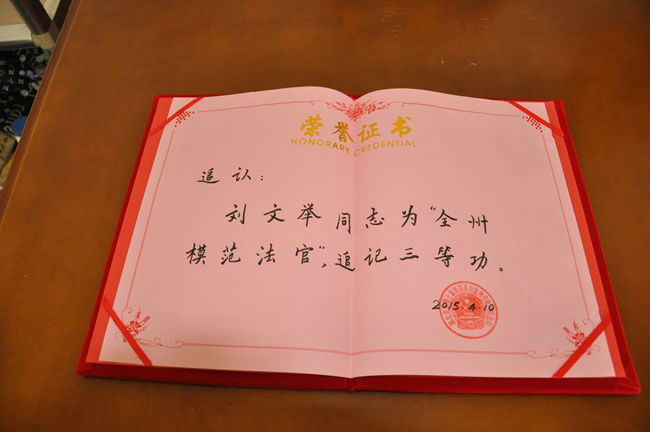 荣誉证书
HONORARY CREDENTIAL
追认:
刘文举同志为“全州
模范法官”,追记三等功。
2015.4.10